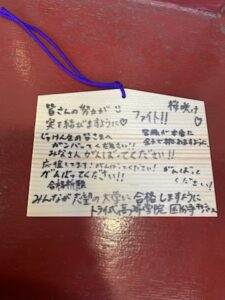 皆さんの努力が
実を結びますように♡
ファイト!!
桜咲け
♡
じゅけん生の皆さまへ
ガンバってください!!
みなさんがんばってください!!
応援してます!がんばってください!
がんばってください!!
合格祈願
がんばって
ください!
みんなが志望の大学に合格しますように
トライ式高等学院 国分寺